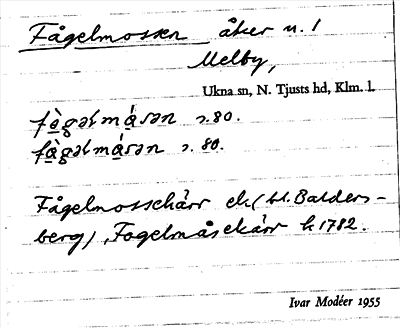 Fågelmossen åker n. 1
Melby,
Ukna sn, N. Tjusts hd, Klm. l.
fò̱gəlmá̱sən s. 80.
fò̱gəlmá̱sən s. 80.
Fågelmossekärr ek (bl. Balders-
berg), Fogelmåsekärr k 1782.
Ivar Modéer 1955